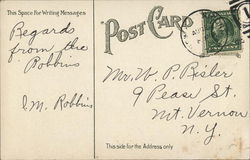 This Space for Writing Messages
POST CARD
Regards
from the
Robbins
I.M. Robbins
Mr. W. P. Risler
9 Pease St.
Mt. Vernon
N. Y.
This side for the Address only